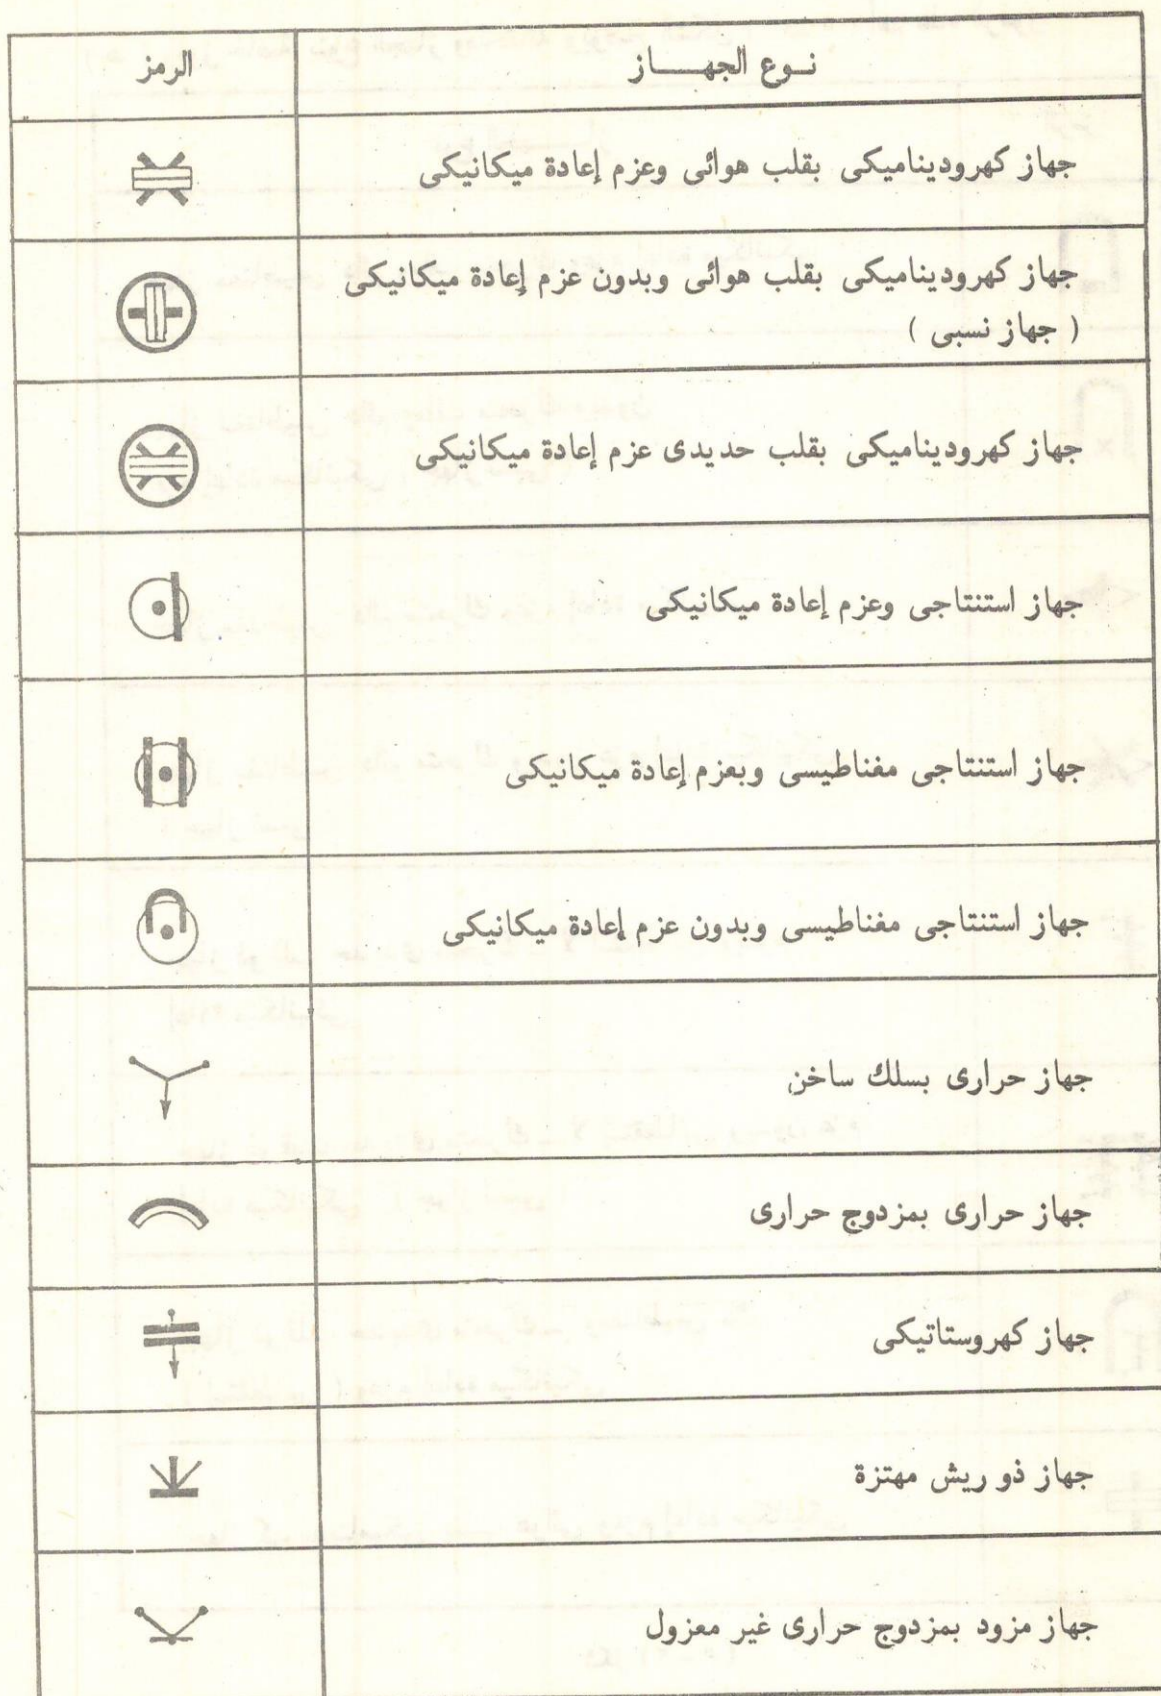 نوع الجهاز
الرمز
جهاز كهروديناميكى بقلب هوائى وعزم إعادة ميكانيكى
جهاز كهروديناميكى بقلب هوائى وبدون عزم إعادة ميكانيكى
( جهاز نسبى )
جهاز كهروديناميكى بقلب حديدى عزم إعادة ميكانيكى
جهاز استنتاجى وعزم إعادة ميكانيكى
جهاز استنتاجى مغناطيسى وبعزم إعادة ميكانيكى
جهاز استنتاجى مغناطيسى وبدون عزم إعادة ميكانيكى
جهاز حرارى بسلك ساخن
جهاز حرارى بمزدوج حرارى
جهاز كهروستاتيكى
جهاز ذو ريش مهتزة
جهاز مزود بمزدوج حرارى غير معزول